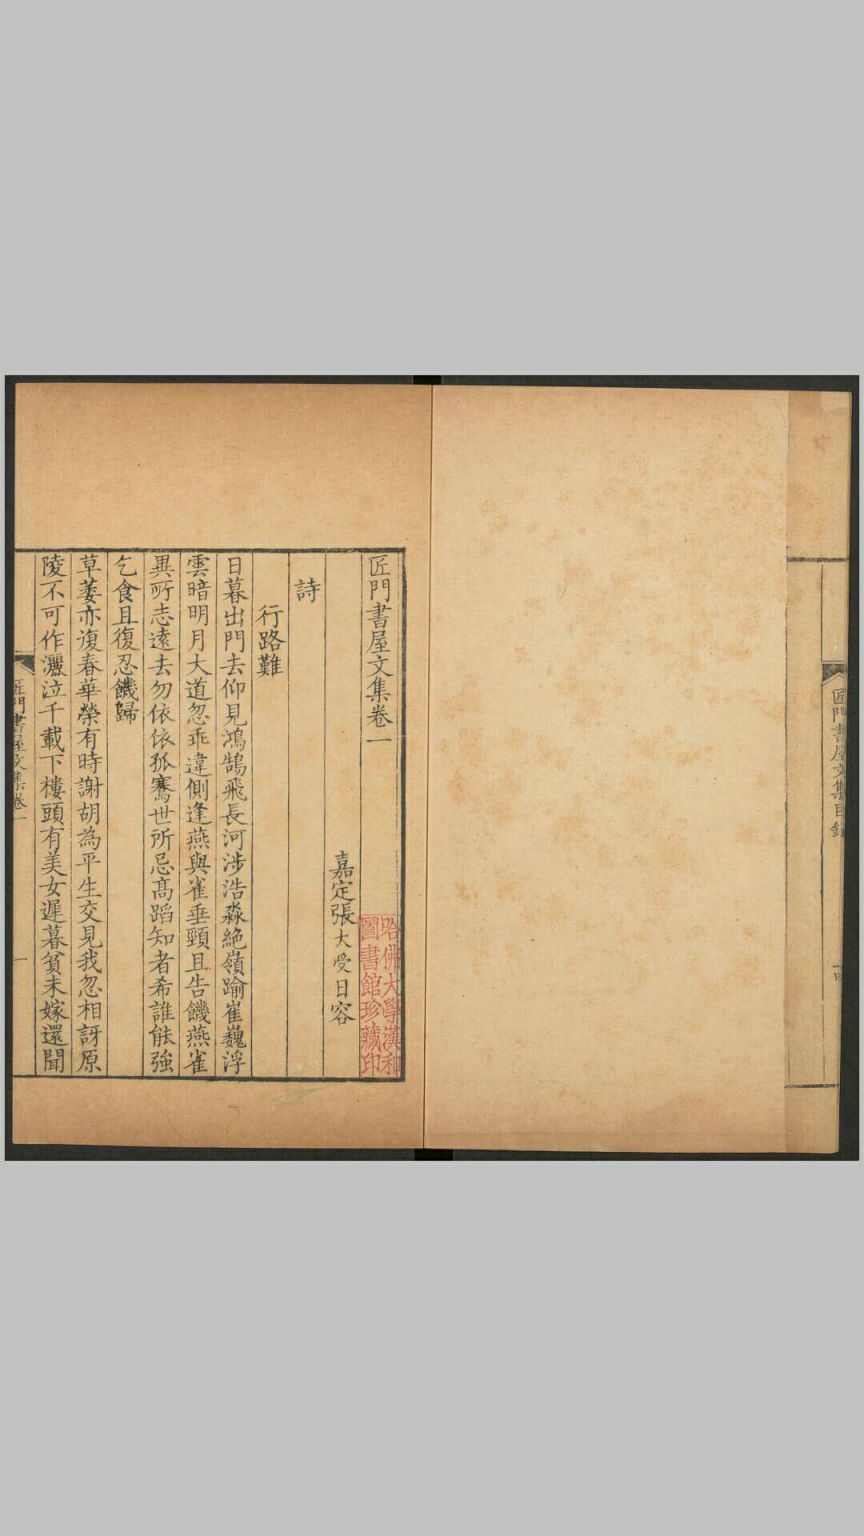 匠門書屋文集目錄
匠門書屋文集卷一
哈佛大學漢和
圖書館珍藏印
嘉定張大受日容
詩
行路難
日暮出門去仰見鴻鵠飛長河涉浩淼絕嶺踰崔巍浮
雲暗明月大道忽乖違側逢燕與雀垂頸且告饑燕雀
異所志遠去勿依依孤騫世所忌高蹈知者希誰能強
乞食且復忍饑歸
草萎亦復春華榮有時謝胡為平生交見我忽相訝原
陵不可作灑泣千載下樓頭有美女遲暮貧未嫁還聞
匠門書屋文集卷一
一